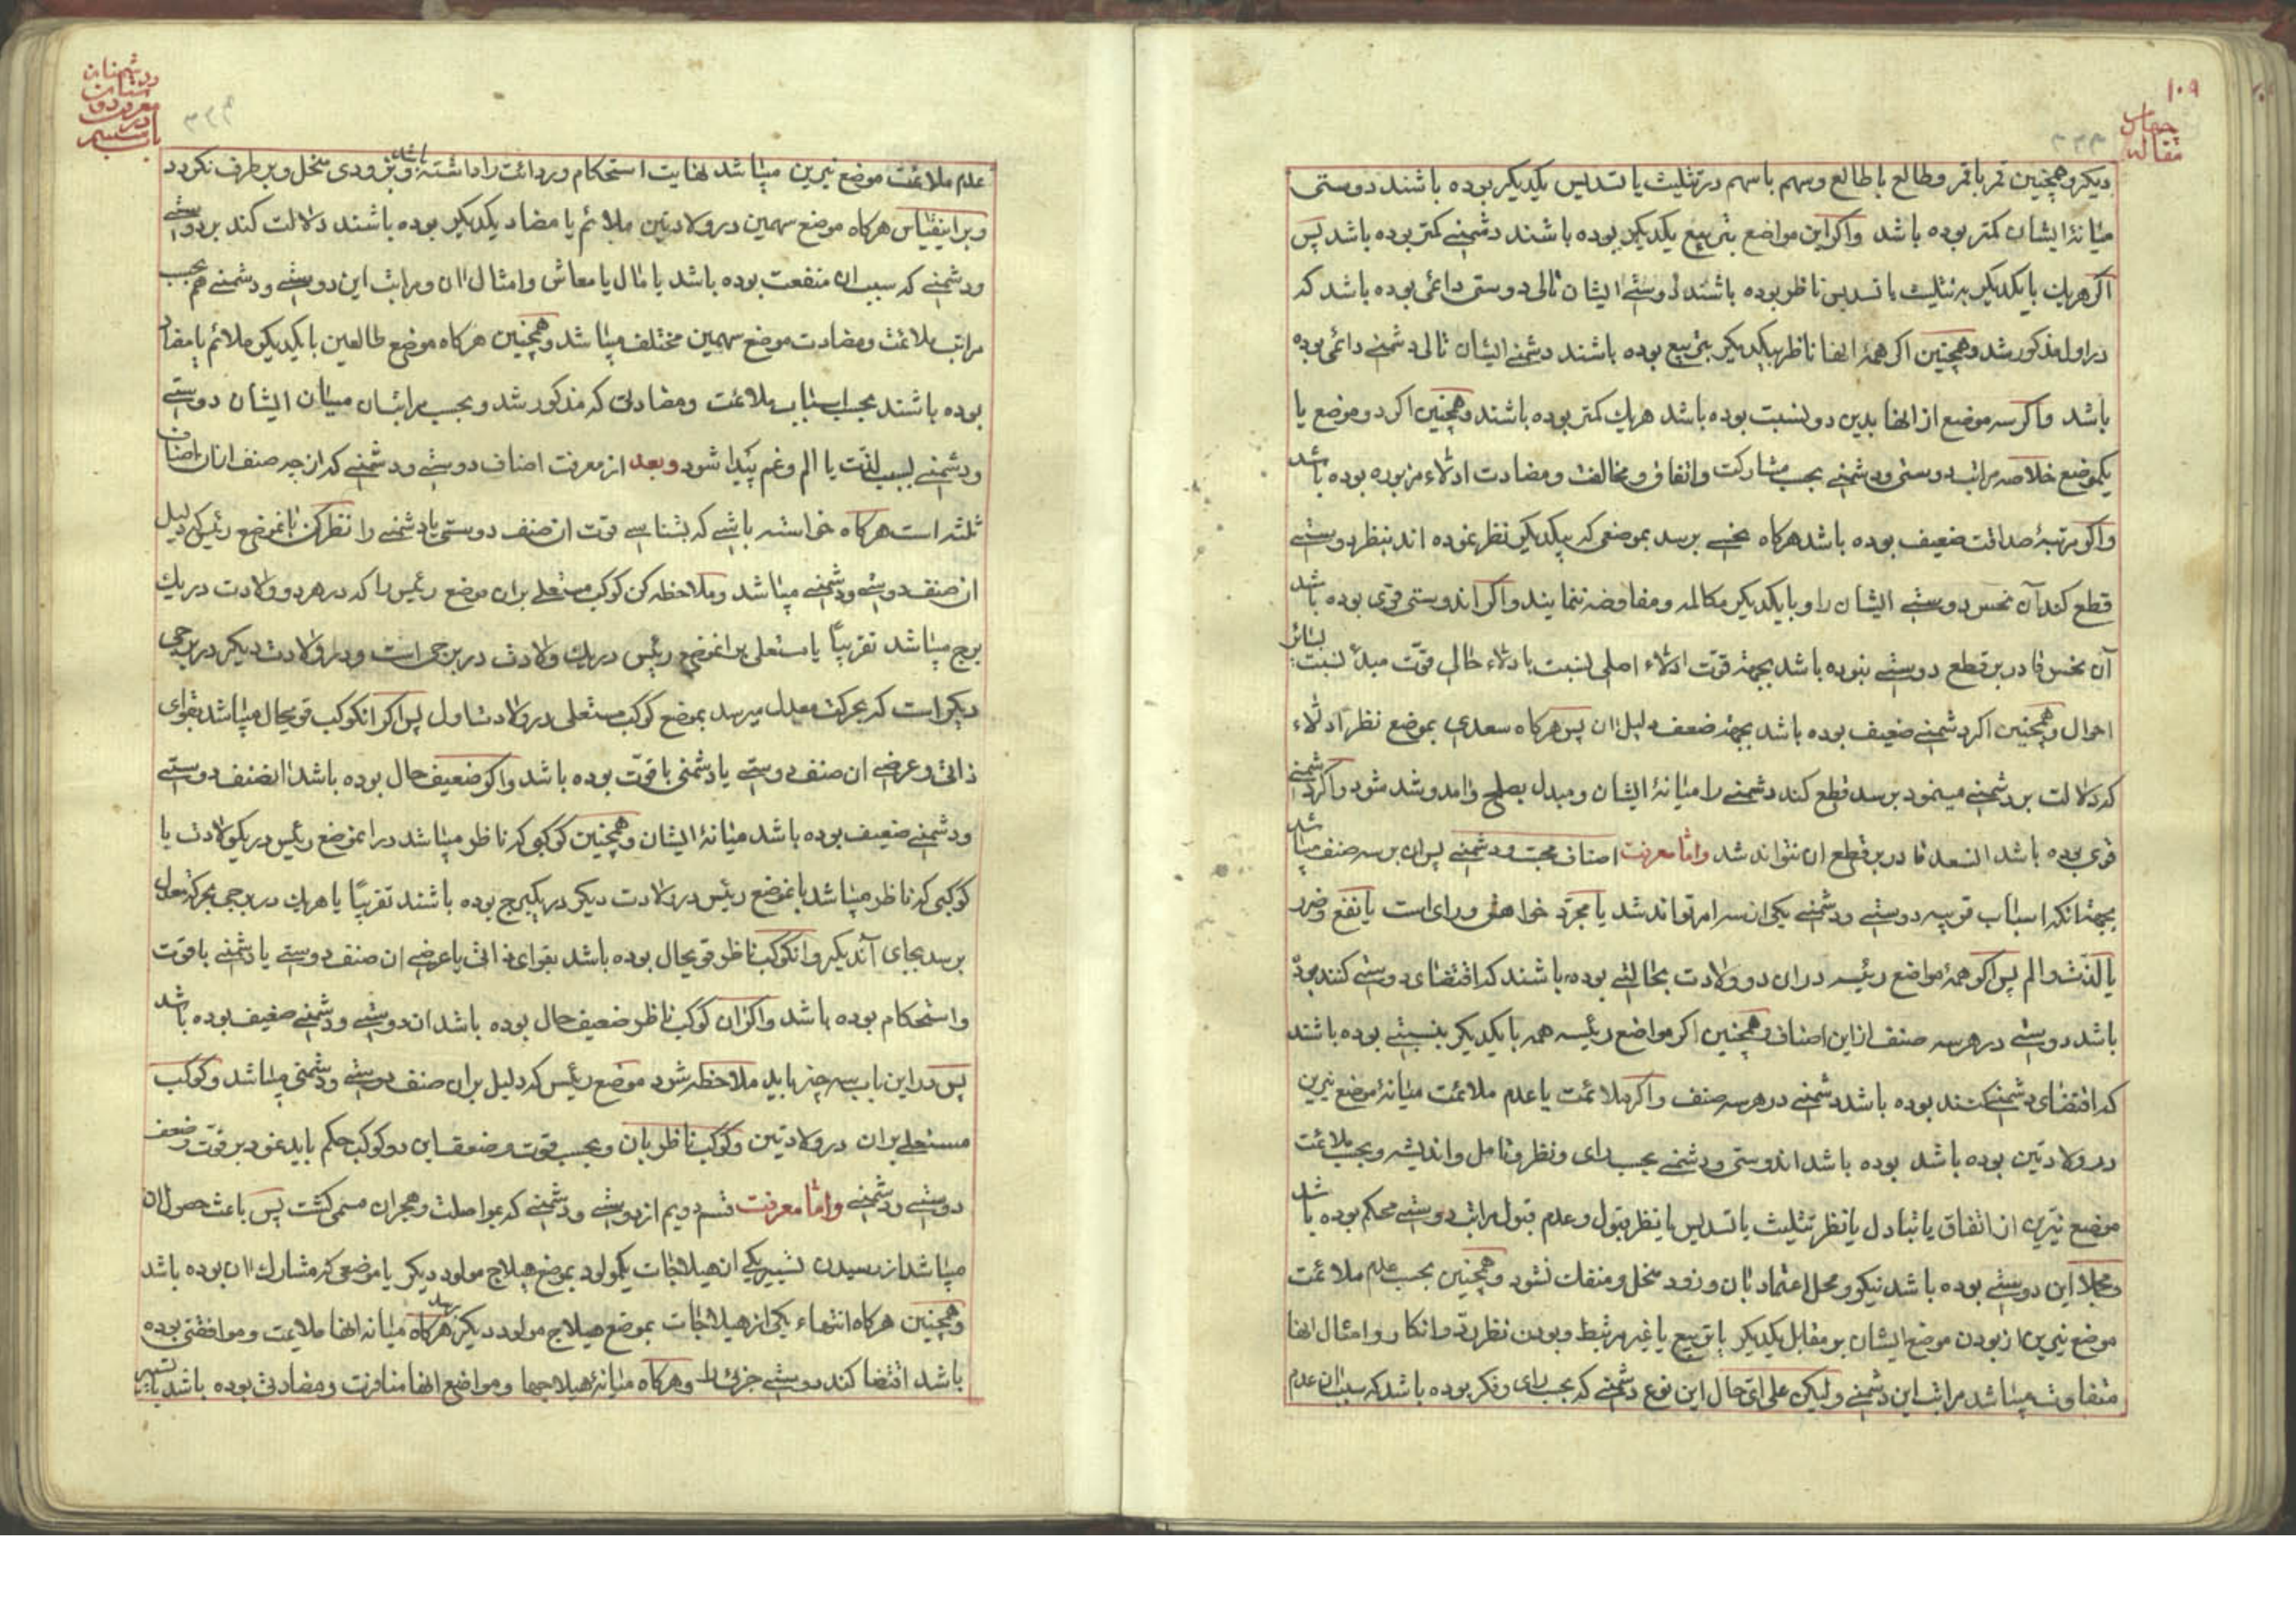 ۱۰۹
مقاله
چهارم
۳۳۳
دیکر وهمچنین قمر با قمر وطالع با طالع وسهم با سهم در تثلیث یا تسدیس یکدیکر بوده باشند دوستی
میانهٔ ایشان کمتر بوده باشد واکر این مواضع بتربیع یکدیکر بوده باشند دشمنی کمتر بوده باشد پس
اکر هریك با یکدیکر به تثلیث یا تسدیس ناظر بوده باشند دوستی ایشان تالی دوستی دائمی بوده باشد که
در اول مذکور شد وهمچنین اکر همهٔ انها ناظر بیکدیکر بتربیع بوده باشند دشمنی ایشان تالی دشمنی دائمی بوده
باشد واکر سه موضع از انها بدین دو نسبت بوده باشد هریك کمتر بوده باشند وهمچنین اکر دو موضع یا
یکموضع خلاصه مراتب دوستی ودشمنی بحسب مشارکت واتفاق ومخالفت ومضادت ادلاء مزبوره بوده باشد
واکر مرتبهٔ صداقت ضعیف بوده باشد هرکاه نحسی برسد بموضعی که بیکدیکر نظر نموده اند بنظر دوستی
قطع کند آن نحس دوستی ایشان را وبا یکدیکر مکالمه ومفاوضه ننمایند واکر اندوستی قوی بوده باشد
آن نحس قادر بر قطع دوستی نبوده باشد بجهة قوّت ادلاء اصلی نسبت با دلاء حالی قوّت مبدأ نسبت بسائر
احوال وهمچنین اکر دشمنی ضعیف بوده باشد بجهة ضعف دلیل ان پس هرکاه سعدی بموضع نظر ادلاء
که دلالت بر دشمنی مینمود برسد قطع کند دشمنی را میانهٔ ایشان ومبدل بصلح وامد وشد شود واکر دشمنی
قوی بوده باشد انسعد قادر بر قطع ان نتواند شد وامّا معرفت اصناف محبت ودشمنی پس ان بر سه صنف میباشد
بجهة انکه اسباب قویه دوستی ودشمنی یکی از سه امر تواند شد یا مجرّد خواهش ورای است یا نفع وضرر
یا لذّت والم پس اکر همهٔ مواضع رئیسه در ان دو ولادت بحالتی بوده باشند که اقتضای دوستی کنند بوده
باشد دوستی در هر سه صنف از این اصناف وهمچنین اکر مواضع رئیسه همه با یکدیکر بنسبتی بوده باشند
که اقتضای دشمنی کنند بوده باشد دشمنی در هر سه صنف واکر ملائمت یا عدم ملائمت میانهٔ موضع نیرین
در ولادتین بوده باشد بوده باشد اندوستی ودشمنی بحسب رای ونظر وتامل واندیشه وبحسب ملائمت
موضع نیّرین از اتفاق یا تبادل یا نظر تثلیث یا تسدیس یا نظر قبول وعدم قبول مراتب دوستی محکم بوده باشد
ومجملا این دوستی بوده باشد نیکو ومحل اعتماد بان وزود مختل ومنفك نشود وهمچنین بحسب عدم ملائمت
موضع نیرین از بودن موضع ایشان بر مقابل یکدیکر یا تربیع یا غیر مرتبط وبودن نظر ردّ وانکار وامثال انها
متفاوت میباشد مراتب این دشمنی ولیکن علی ایّ حال این نوع دشمنی که بحسب رای وفکر بوده باشد که سبب ان عدم
باب سیم
در
معرفت دو
ستان
ودشمنان
۳۳۴
عدم ملائمت موضع نیرین میباشد نهایت استحکام وردائت را داشته باشد وبزودی مختل وبر طرف نکردد
وبر اینقیاس هرکاه موضع سهمین در ولادتین ملائم یا مضاد یکدیکر بوده باشند دلالت کند بر دوستی
ودشمنی که سبب ان منفعت بوده باشد یا مال یا معاش وامثال ان ومراتب این دوستی ودشمنی هم بحسب
مراتب ملائمت ومضادت موضع سهمین مختلف میباشد وهمچنین هرکاه موضع طالعین با یکدیکر ملائم یا مضاد
بوده باشند بحسب اسباب ملائمت ومضادتی که مذکور شد وبحسب مراتب ان میان ایشان دوستی
ودشمنی بسبب لذّت یا الم وغم پیدا شود وبعد از معرفت اصناف دوستی ودشمنی که از چه صنف از ان اصناف
ثلثه است هرکاه خواسته باشی که بشناسی قوت ان صنف دوستی یا دشمنی را نظر کن بانموضع رئیس که دلیل
ان صنف دوستی ودشمنی میباشد وملاحظه کن کوکب مستعلی بر ان موضع رئیس را که در هر دو ولادت در یك
برج میباشد تقریبًا یا مستعلی بر انموضع رئیس در یك ولادت در برجی است ودر ولادت دیکر در برجی
دیکر است که بحرکت معدل میرسد بموضع کوکب مستعلی در ولادت اول پس اکر انکوکب قویحال میباشد بقوای
ذاتی وعرضی ان صنف دوستی یا دشمنی با قوّت بوده باشد واکر ضعیف حال بوده باشد انصنف دوستی
ودشمنی ضعیف بوده باشد میانهٔ ایشان وهمچنین کوکبی که ناظر میباشد در انموضع رئیس در یکولادت یا
کوکبی که ناظر میباشد بانموضع رئیس در ولادت دیکر در یکبرج بوده باشند تقریبًا یا هریك در برجی بحرکة معدل
برسد بجای آندیکر وانکوکب ناظر قویحال بوده باشد بقوای ذاتی یا عرضی ان صنف دوستی یا دشمنی با قوّت
واستحکام بوده باشد واکر ان کوکب ناظر ضعیف حال بوده باشد ان دوستی ودشمنی ضعیف بوده باشد
پس در این باب سه چیز باید ملاحظه شود موضع رئیس که دلیل بر ان صنف دوستی ودشمنی میباشد وکوکب
مستعلی بر ان در ولادتین وکوکب ناظر بان وبحسب قوت وضعف این دو کوکب حکم باید نمود بر قوّت وضعف
دوستی ودشمنی وامّا معرفت قسم دویم از دوستی ودشمنی که بمواصلت وهجران مسمی کشت پس باعث حصول ان
میباشد از رسیدن تسییر یکی از هیلاجات یکمولود بموضع هیلاج مولود دیکر یا موضعی که مشارك ان بوده باشد
وهمچنین هرکاه انتهاء یکی از هیلاجات بموضع هیلاج مولود دیکر برسد هرکاه میانه انها ملایمت وموافقتی بوده
باشد اقتضا کند دوستی جزئی را وهرکاه میانهٔ هیلاجها ومواضع انها منافرت ومضادتی بوده باشد